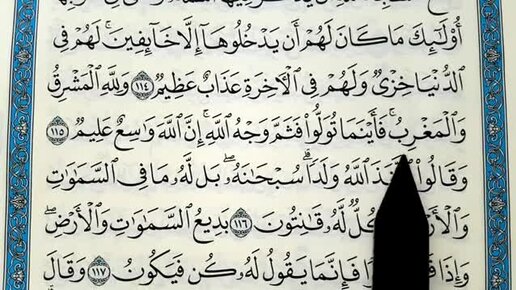 أُوْلَٰٓئِكَ مَا كَانَ لَهُمْ أَن يَدْخُلُوهَآ إِلَّا خَآئِفِينَۚ لَهُمْ فِي
ٱلدُّنْيَا خِزْيٌ وَلَهُمْ فِي ٱلْأٓخِرَةِ عَذَابٌ عَظِيمٌ ١١٤ وَلِلَّهِ ٱلْمَشْرِقُ
وَٱلْمَغْرِبُۚ فَأَيْنَمَا تُوَلُّواْ فَثَمَّ وَجْهُ ٱللَّهِۚ إِنَّ ٱللَّهَ وَٰسِعٌ عَلِيمٌ ١١٥
وَقَالُواْ ٱللَّهُ وَلَدٗاۗ سُبْحَٰنَهُۥۖ بَل لَّهُۥ مَا فِي ٱلسَّمَٰوَٰتِ
كُلٌّ لَّهُۥ قَٰنِتُونَ ١١٦ بَدِيعُ ٱلسَّمَٰوَٰتِ وَٱلْأَرْضِۖ
وَإِذَا فَإِنَّمَا يَقُولُ لَهُۥ كُن فَيَكُونُ ١١٧ وَقَالَ